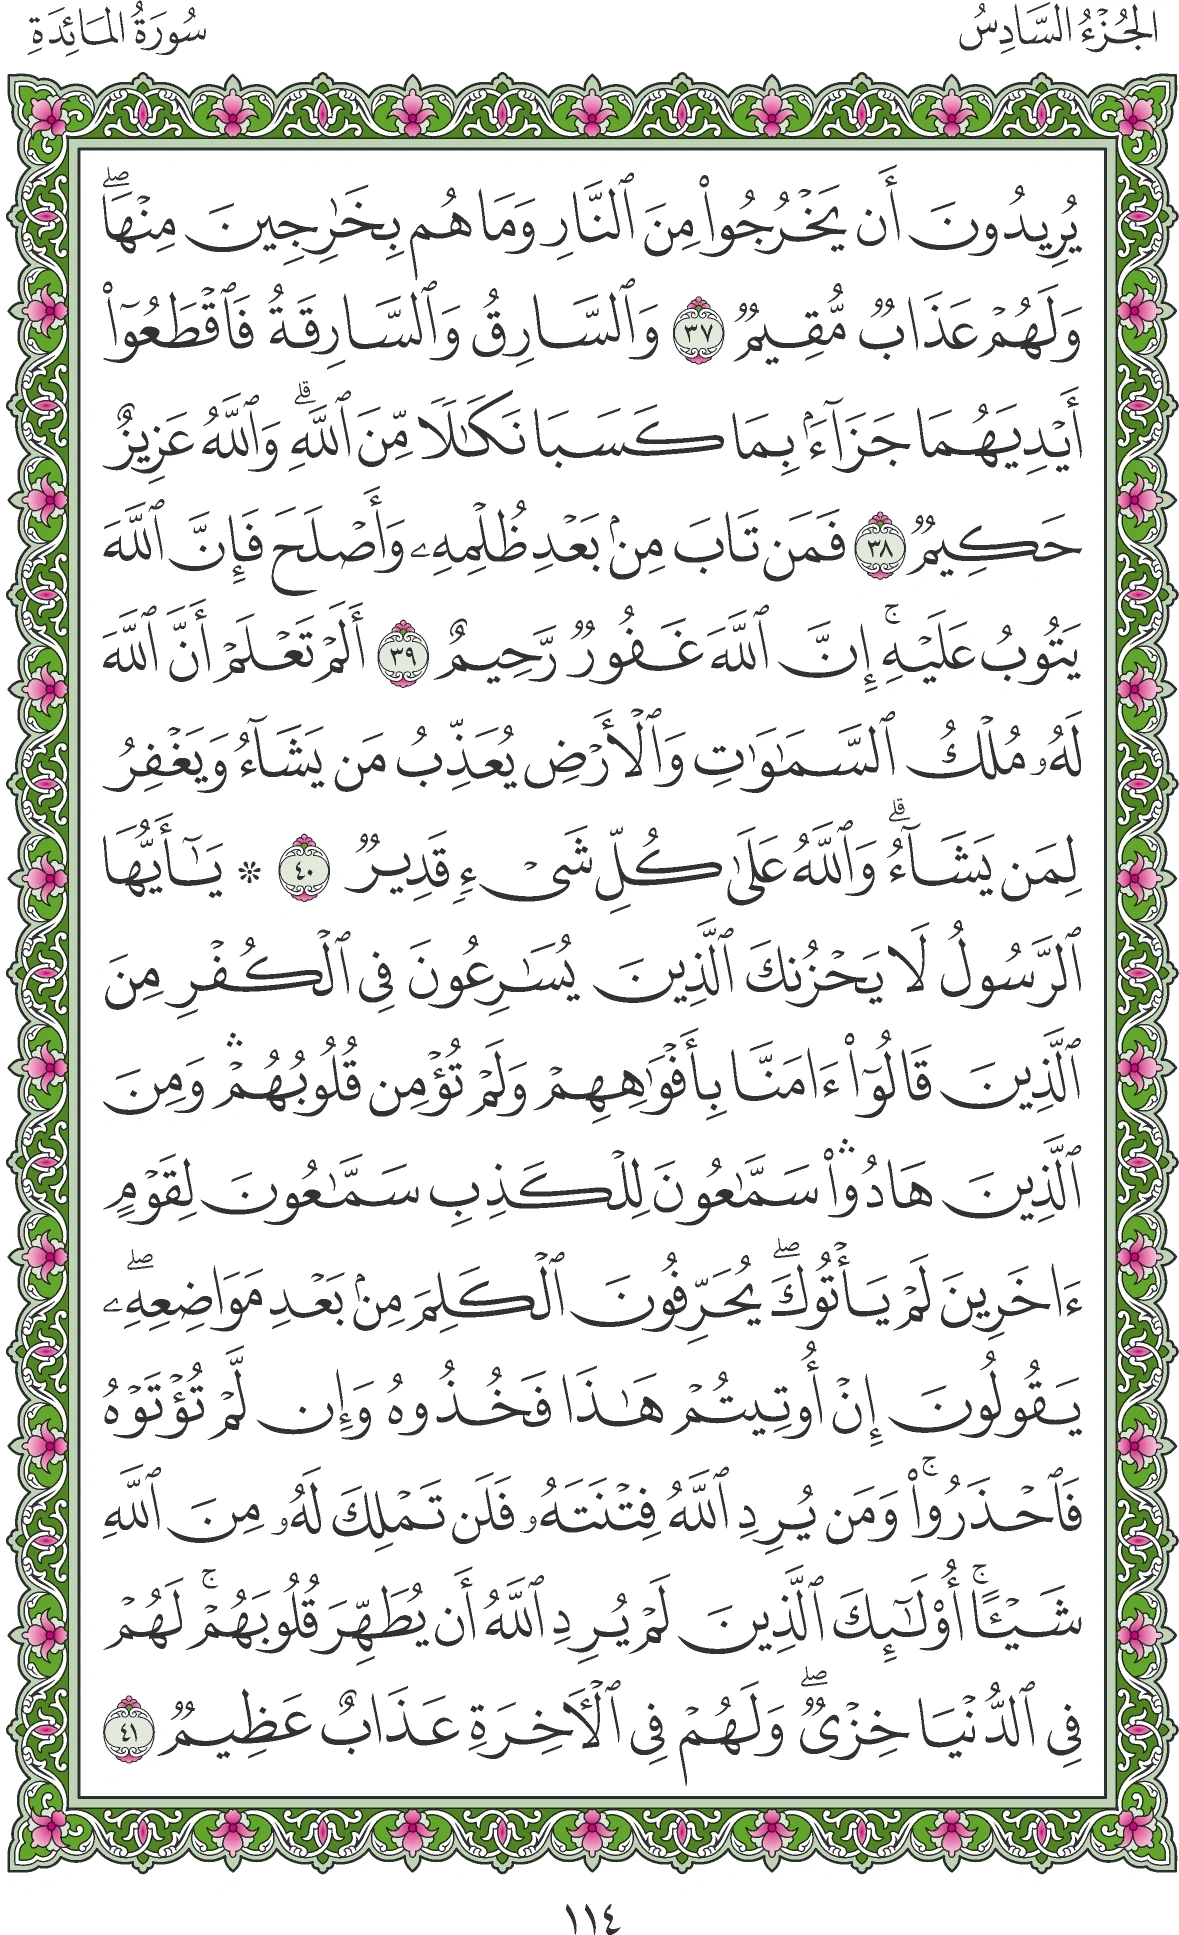 الجُزْءُ السَّادِسُ
سُورَةُ المَائِدَةِ
يُرِيدُونَ أَن يَخْرُجُوا۟ مِنَ ٱلنَّارِ وَمَا هُم بِخَـٰرِجِينَ مِنْهَا ۖ
وَلَهُمْ عَذَابٌ مُّقِيمٌ ٣٧ وَٱلسَّارِقُ وَٱلسَّارِقَةُ فَٱقْطَعُوٓا۟
أَيْدِيَهُمَا جَزَآءًۢ بِمَا كَسَبَا نَكَـٰلًا مِّنَ ٱللَّهِ ۗ وَٱللَّهُ عَزِيزٌ
حَكِيمٌ ٣٨ فَمَن تَابَ مِنۢ بَعْدِ ظُلْمِهِۦ وَأَصْلَحَ فَإِنَّ ٱللَّهَ
يَتُوبُ عَلَيْهِ ۚ إِنَّ ٱللَّهَ غَفُورٌ رَّحِيمٌ ٣٩ أَلَمْ تَعْلَمْ أَنَّ ٱللَّهَ
لَهُۥ مُلْكُ ٱلسَّمَـٰوَٰتِ وَٱلْأَرْضِ يُعَذِّبُ مَن يَشَآءُ وَيَغْفِرُ
لِمَن يَشَآءُ ۗ وَٱللَّهُ عَلَىٰ كُلِّ شَىْءٍ قَدِيرٌ ٤٠ * يَـٰٓأَيُّهَا
ٱلرَّسُولُ لَا يَحْزُنكَ ٱلَّذِينَ يُسَـٰرِعُونَ فِى ٱلْكُفْرِ مِنَ
ٱلَّذِينَ قَالُوٓا۟ ءَامَنَّا بِأَفْوَٰهِهِمْ وَلَمْ تُؤْمِن قُلُوبُهُمْ ۛ وَمِنَ
ٱلَّذِينَ هَادُوا۟ ۛ سَمَّـٰعُونَ لِلْكَذِبِ سَمَّـٰعُونَ لِقَوْمٍ
ءَاخَرِينَ لَمْ يَأْتُوكَ ۖ يُحَرِّفُونَ ٱلْكَلِمَ مِنۢ بَعْدِ مَوَاضِعِهِۦ ۖ
يَقُولُونَ إِنْ أُوتِيتُمْ هَـٰذَا فَخُذُوهُ وَإِن لَّمْ تُؤْتَوْهُ
فَٱحْذَرُوا۟ ۚ وَمَن يُرِدِ ٱللَّهُ فِتْنَتَهُۥ فَلَن تَمْلِكَ لَهُۥ مِنَ ٱللَّهِ
شَيْـًٔا ۚ أُو۟لَـٰٓئِكَ ٱلَّذِينَ لَمْ يُرِدِ ٱللَّهُ أَن يُطَهِّرَ قُلُوبَهُمْ ۚ لَهُمْ
فِى ٱلدُّنْيَا خِزْىٌ ۖ وَلَهُمْ فِى ٱلْـَٔاخِرَةِ عَذَابٌ عَظِيمٌ ٤١
١١٤